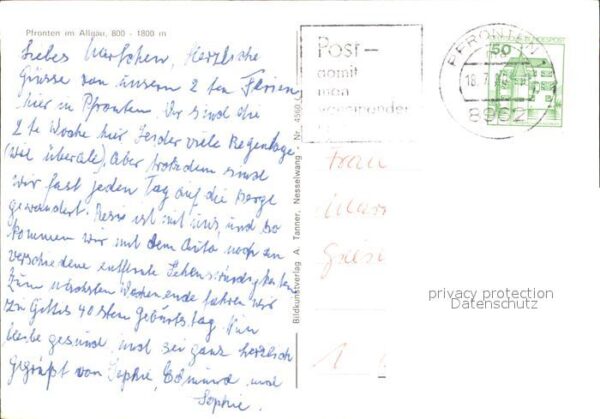 Pfronten im Allgäu, 800 - 1800 m
Liebes Mariechen, Herzliche
Grüsse von unsern 2 ten Ferien
hier in Pfronten. Wir sind die
2 te Woche hier leider viele Regentage
(wie überale). Aber trotzdem sind
wir fast jeden Tag auf die Berge
gewandert. ist mit uns, und so
kommen wir mit dem Auto noch an
verschiedene entfernte Sehenswürdigkeiten
Zum nächsten Wochenende fahren wir
zu Gittas 40 stem Geburtstag. Nun
bleibe gesund und sei ganz herzlich
gegrüßt von Sophie, Edmund und
Sophie.
Bildkunstverlag A. Tanner, Nesselwang - Nr. 4560
Post –
damit
man
voneinander
PFRONTEN 1
18.7.
8962
50
BUNDESPOST
Frau
1
privacy protection
Datenschutz